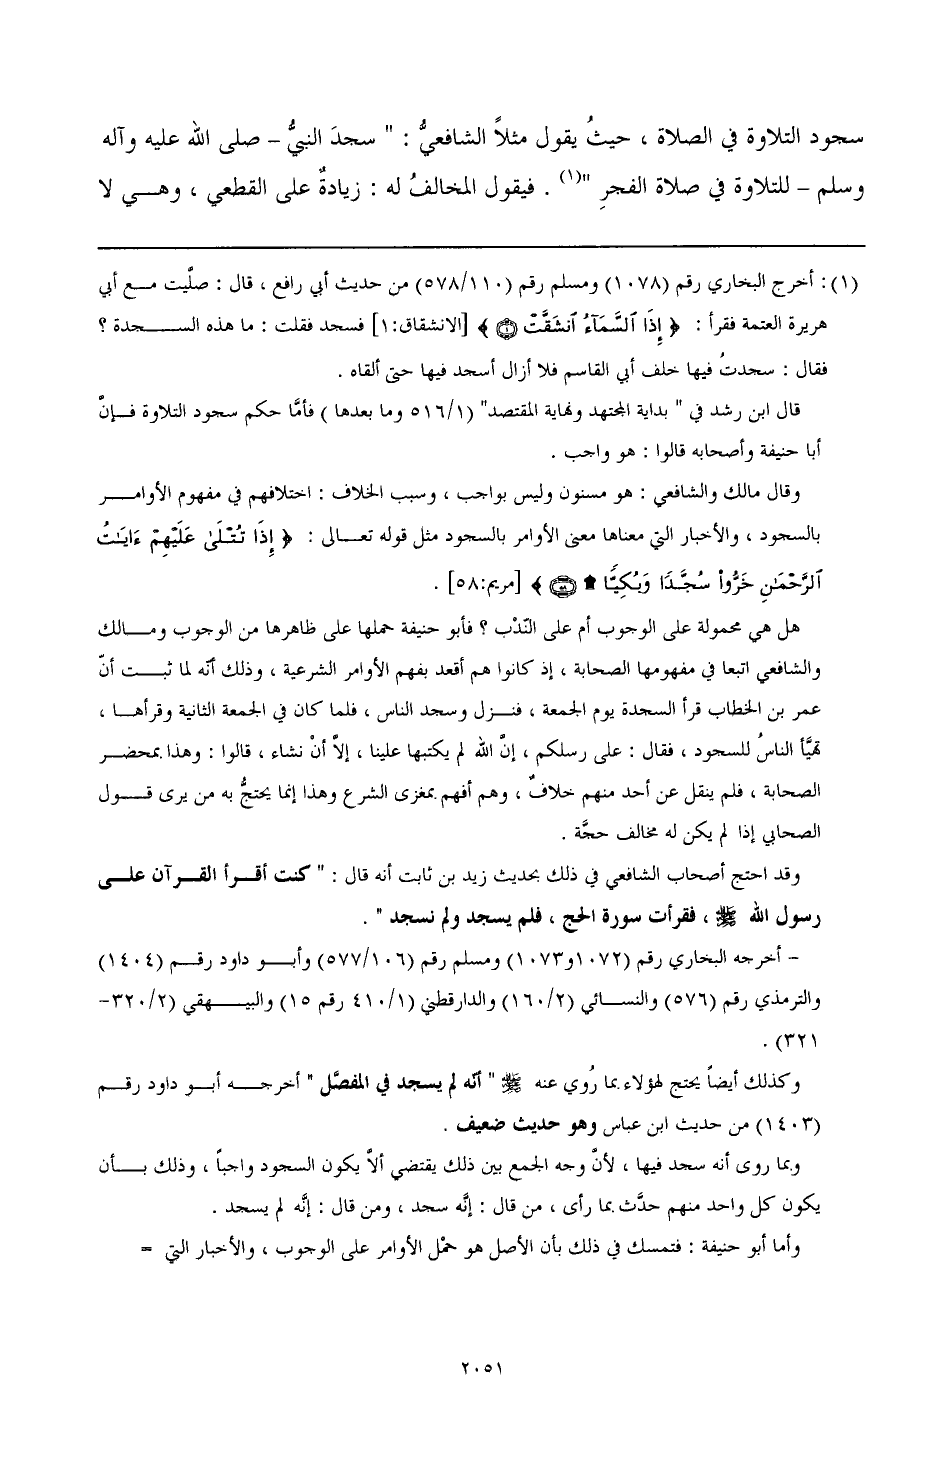 سجود التلاوة في الصلاة ، حيثُ يقول مثلاً الشافعيُّ : " سجدَ النبيُّ – صلى الله عليه وآله
وسلم – للتلاوة في صلاة الفجرِ "(١) . فيقول المخالفُ له : زيادةٌ على القطعي ، وهـــي لا
(١): أخرج البخاري رقم (١٠٧٨) ومسلم رقم (٥٧٨/١١٠) من حديث أبي رافع ، قال : صلَّيت مـــع أبي
هريرة العتمة فقرأ : ﴿ إِذَا ٱلسَّمَآءُ ٱنشَقَّتْ ۝١ ﴾ [الانشقاق:١] فسجد فقلت : ما هذه الســـــجدة ؟
فقال : سجدتُ فيها خلف أبي القاسم فلا أزال أسجد فيها حتى ألقاه .
قال ابن رشد في " بداية المجتهد ونهاية المقتصد" (٥١٦/١ وما بعدها ) فأمَّا حكم سجود التلاوة فـــإنَّ
أبا حنيفة وأصحابه قالوا : هو واجب .
وقال مالك والشافعي : هو مسنون وليس بواجب ، وسبب الخلاف : اختلافهم في مفهوم الأوامــــر
بالسجود ، والأخبار التي معناها معنى الأوامر بالسجود مثل قوله تعـــالى : ﴿ إِذَا تُتْلَىٰ عَلَيْهِمْ ءَايَـٰتُ
ٱلرَّحْمَـٰنِ خَرُّوا۟ سُجَّدًا وَبُكِيًّا ۩ ۝٥٨ ﴾ [مريم:٥٨] .
هل هي محمولة على الوجوب أم على النّدْب ؟ فأبو حنيفة حملها على ظاهرها من الوجوب ومـــالك
والشافعي اتبعا في مفهومها الصحابة ، إذ كانوا هم أقعد بفهم الأوامر الشرعية ، وذلك أنَّه لما ثبـــت أنّ
عمر بن الخطاب قرأ السجدة يوم الجمعة ، فنــزل وسجد الناس ، فلما كان في الجمعة الثانية وقرأهـــا ،
تهيَّأ الناسُ للسجود ، فقال : على رسلكم ، إنَّ الله لم يكتبها علينا ، إلاَّ أنْ نشاء ، قالوا : وهذا بمحضـــر
الصحابة ، فلم ينقل عن أحد منهم خلافٌ ، وهم أفهم بمغزى الشرع وهذا إنما يحتجُّ به من يرى قـــول
الصحابي إذا لم يكن له مخالف حجَّة .
وقد احتج أصحاب الشافعي في ذلك بحديث زيد بن ثابت أنه قال : " كنت أقـــرأ القـــرآن علـــى
رسول الله ﷺ ، فقرأت سورة الحج ، فلم يسجد ولم نسجد " .
– أخرجه البخاري رقم (١٠٧٢و١٠٧٣) ومسلم رقم (٥٧٧/١٠٦) وأبـــو داود رقـــم (١٤٠٤)
والترمذي رقم (٥٧٦) والنســـائي (١٦٠/٢) والدارقطني (٤١٠/١ رقم ١٥) والبيـــهقي (٣٢٠/٢–
٣٢١) .
وكذلك أيضاً يحتج لهؤلاء بما رُوي عنه ﷺ " أنّه لم يسجد في المفصَّل " أخرجـــه أبـــو داود رقـــم
(١٤٠٣) من حديث ابن عباس وهو حديث ضعيف .
وبما روى أنه سجد فيها ، لأنَّ وجه الجمع بين ذلك يقتضي ألاَّ يكون السجود واجباً ، وذلك بـــأن
يكون كل واحد منهم حدَّث بما رأى ، من قال : إنَّه سجد ، ومن قال : إنَّه لم يسجد .
وأما أبو حنيفة : فتمسك في ذلك بأن الأصل هو حمْل الأوامر على الوجوب ، والأخبار التي =
٢٠٥١